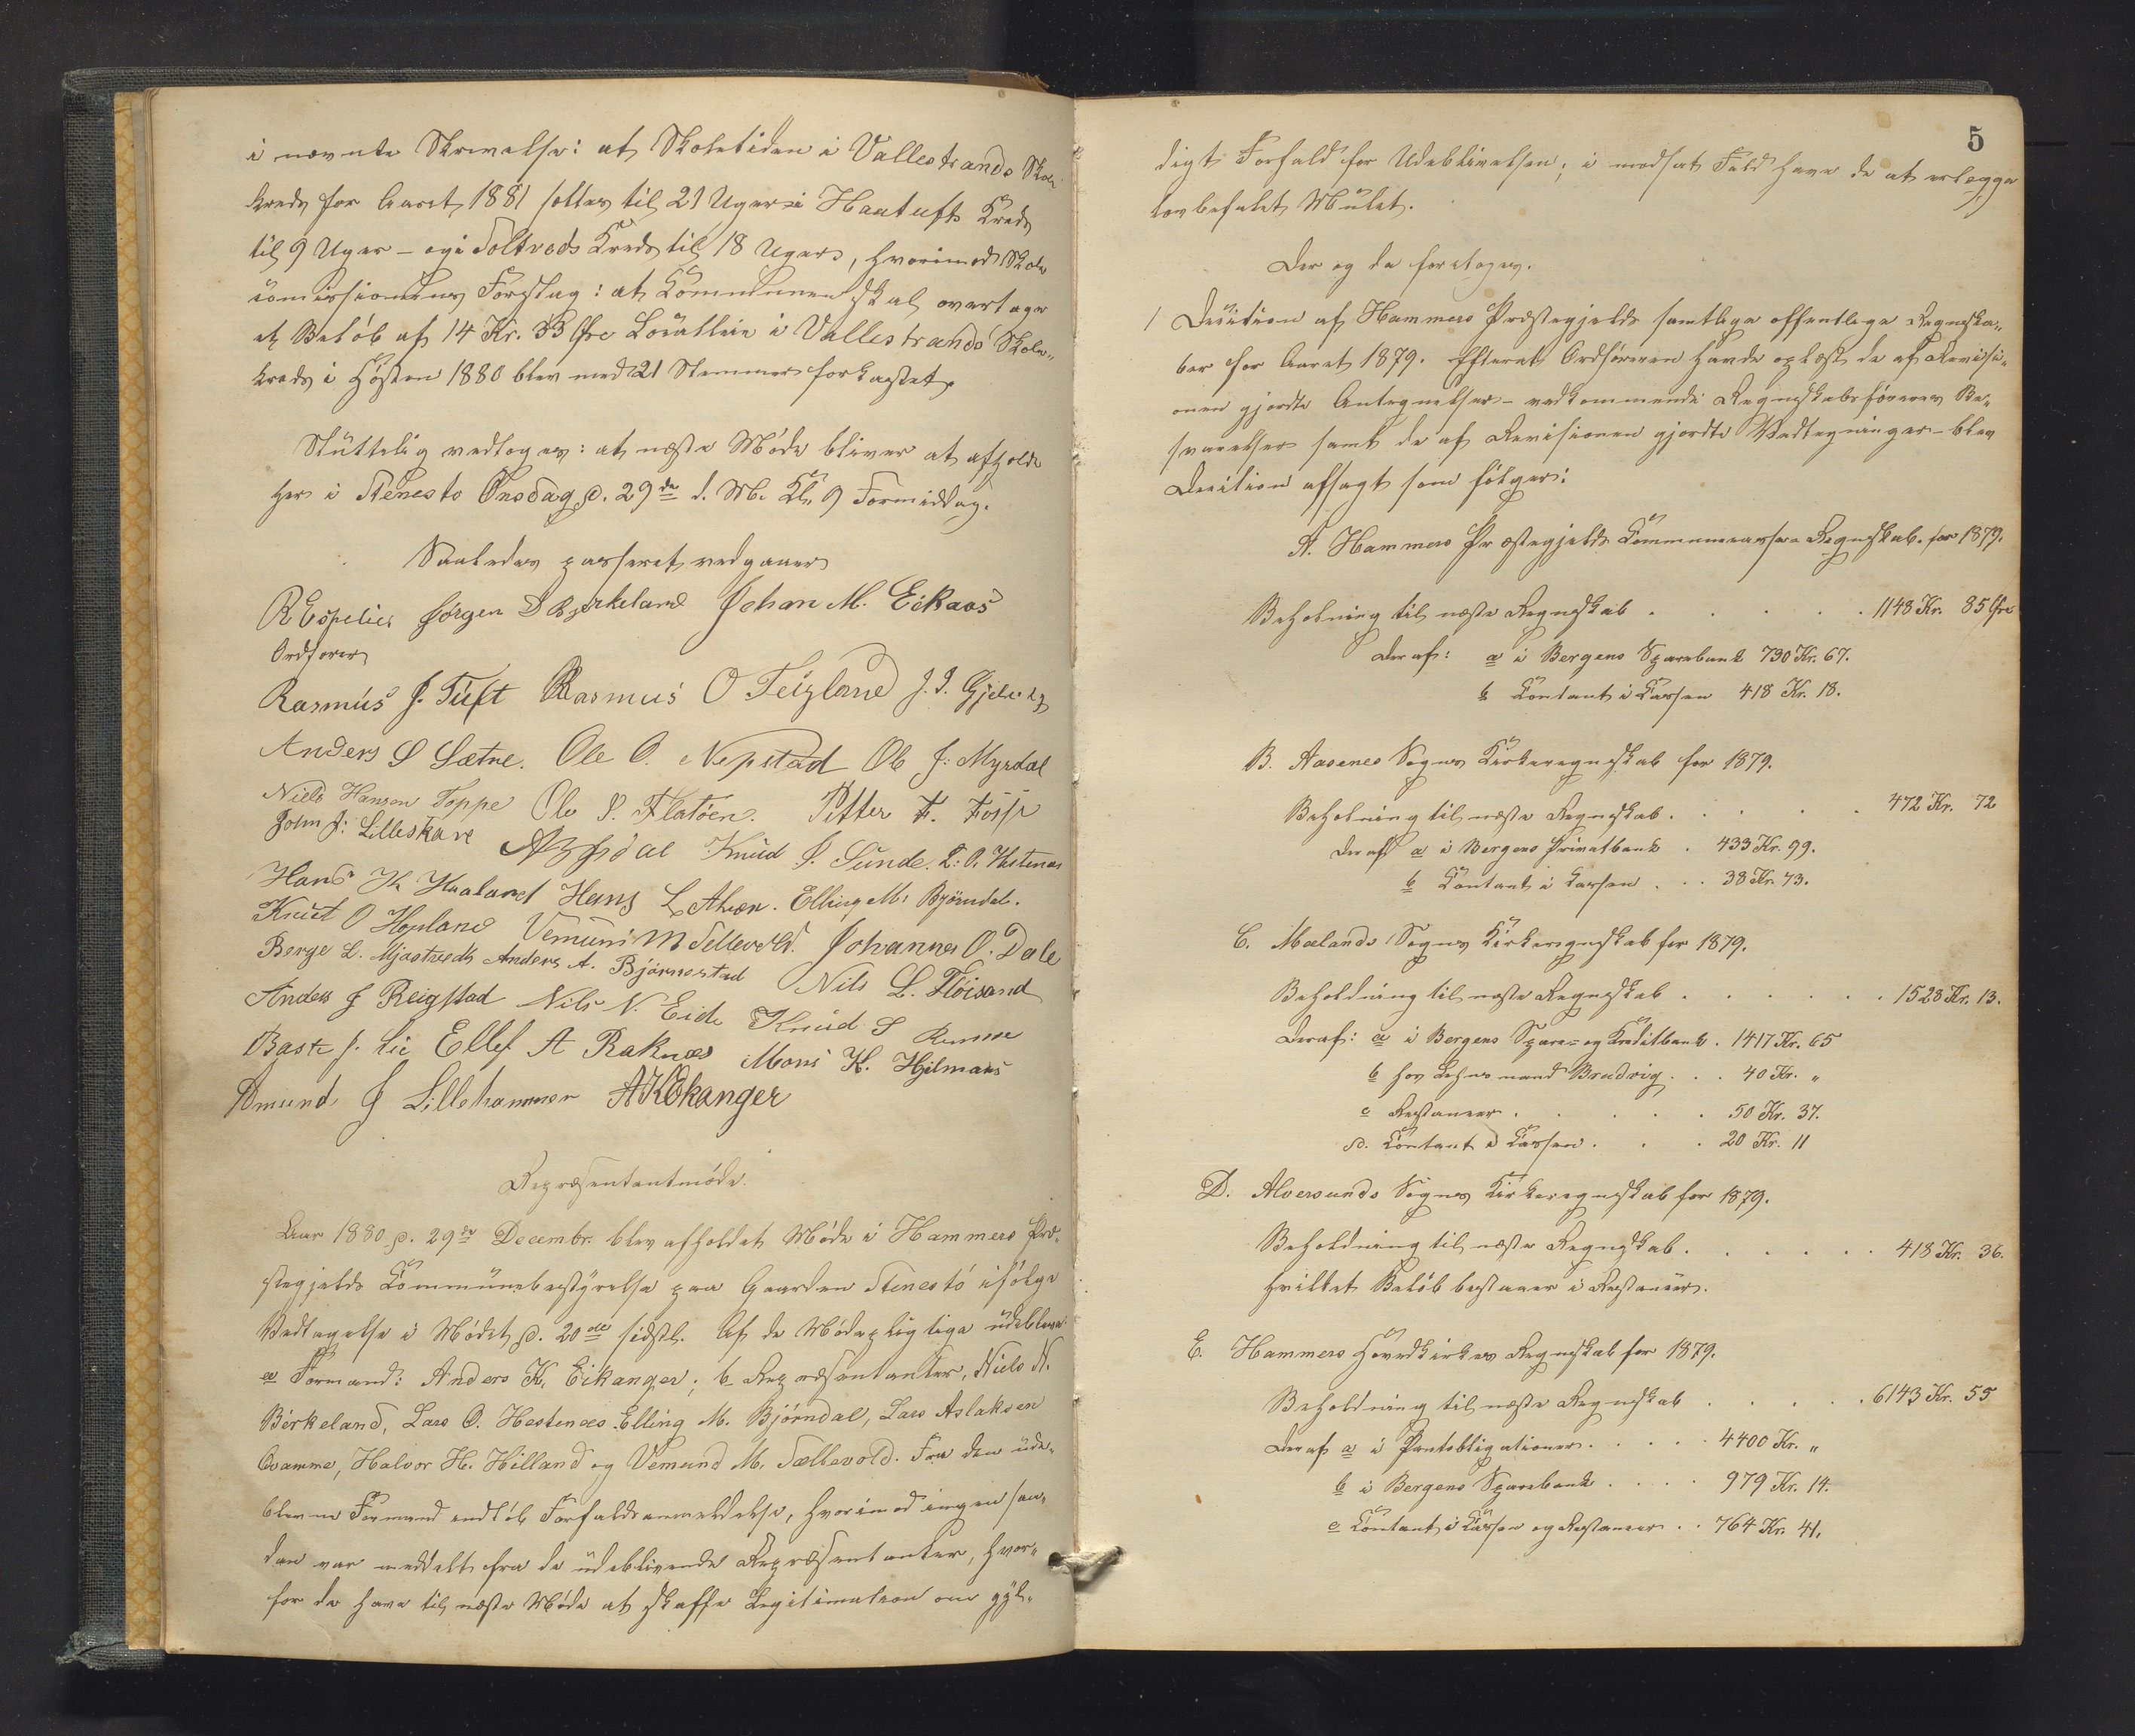 i nævnte Skrivelse: at Skoletiden i Vallestrands Skole
kreds for Aaret 1881 sættes til 21 Uger i Hantufts Kreds
til 9 Uger – og i Toltveds Kreds til 18 Uger, hvorimod Skole
comissionens Forslag: at Kommunen skal overtage
et Beløb af 14 Kr. 33 Øre Localleie i Vallestrands Skole„
kreds i Høsten 1880 blev med 21 Stemmer forkastet.
Sluttelig vedtoges: at næste Møde bliver at afholde
her i Stenestø Onsdag d. 29de d. M. Kl. 9 Formiddag.
Saaledes passeret vedgaaer
R Espelien Jørgen D Bjerkeland Johan M. Eikaas
Ordfører
Rasmus J. Tuft Rasmus O Teigland J. I. Gjelvig
Anders S Sætre. Ole O. Nepstad Ole J: Myrdal
Niels Hansen Toppe Ole P. Flatøen. Pitter F. Fosse
John J: Lilleskare Knud J. Sunde. L: O. Hestenæs
Hans K Kaaland Hans L Athun. Elling M: Bjørndal.
Knut O Hopland Vemund M Tellevold. Johannes O. Dale
Berge L. Mjøstveds Anders A. Bjørnestad Nils L. Fløisand
Anders J Reigstad Nils N. Eide Knud S Runne
Baste J. Lie Ellef A Raknæs Mons K. Hjelmaas
Amund J Lillehammer A K Eikanger
Repræsentantmøde.
Aar 1880 d. 29de Decembr. blev afholdet Møde i Hammers Præ„
stegjelds Kommunebestyrelse paa Gaarden Stenestø ifølge
Vedtagelse i Mødet d. 20de sidstl. Af de Mødepligtige udebleve
a Formand: Anders K. Eikanger; b Repræsentanter, Niels N.
Birkeland, Lars O. Hestenæs Elling M. Bjørndal, Lars Aslaksen
Qvamme, Halvor H. Hilland og Vemund M. Tellevold. Fra den ude„
blevne Formand indløb Forfaldsanmeldelse, hvorimod ingen saa„
dan var meddelt fra de udeblivende Repræsentanter, hvor„
for de have til næste Møde at skaffe Legitimation om gyl„
5
digt Forfald for Udeblivelsen; i modsat Fald have de at erlægge
lovbefalet Mulct.
Der og da foretoges.
1 Decition af Hammers Præstegjelds samtlige offentlige Regnska„
ber for Aaret 1879. Efterat Ordføreren havde oplæst de af Revisi„
onen gjordte Antegnelser – vedkommende Regnskabsføreres Be„
svarelser samt de af Revisionen gjordte Vedtegninger – blev
Decition afsagt som følger:
A. Hammers Præstegjelds Kommunecasse Regnskab for 1879.
Beholning til næste Regnskab . . . . . 1148 Kr. 85 Øre
Deraf: a i Bergens Sparebank 730 Kr. 67.
b Contant i Cassen 418 Kr. 18.
B. Aasenes Sogns Kirkeregnskab for 1879.
Beholning til næste Regnskab . . . . . 472 Kr. 72
Deraf a i Bergens Privatbank . 433 Kr. 99.
b Contant i Cassen . . . 38 Kr. 73.
C. Mælands Sogns Kirkeregnskab for 1879.
Beholdning til næste Regnskab . . . . . . 1528 Kr. 13.
Deraf: a i Bergens Spare= og Kreditbank . 1417 Kr. 65
b hos Lehnsmand Brudvig . . . 40 Kr. „
c Restancer . . . . . 50 Kr. 37.
d. Contant i Cassen . . . 20 Kr. 11
D. Alversunds Sogns Kirkeregnskab for 1879.
Beholdning til næste Regnskab . . . . . . 418 Kr. 36.
hvilket Beløb bestaaer i Restancer.
E. Hammers Hovedkirkes Regnskab for 1879.
Beholdning til næste Regnskab . . . . . 6143 Kr. 55
Deraf a i Pantobligationer . . . . . 4400 Kr. „
b i Bergens Sparebank . . . . 979 Kr. 14.
c Contant i Cassen og Restancer . . 764 Kr. 41.